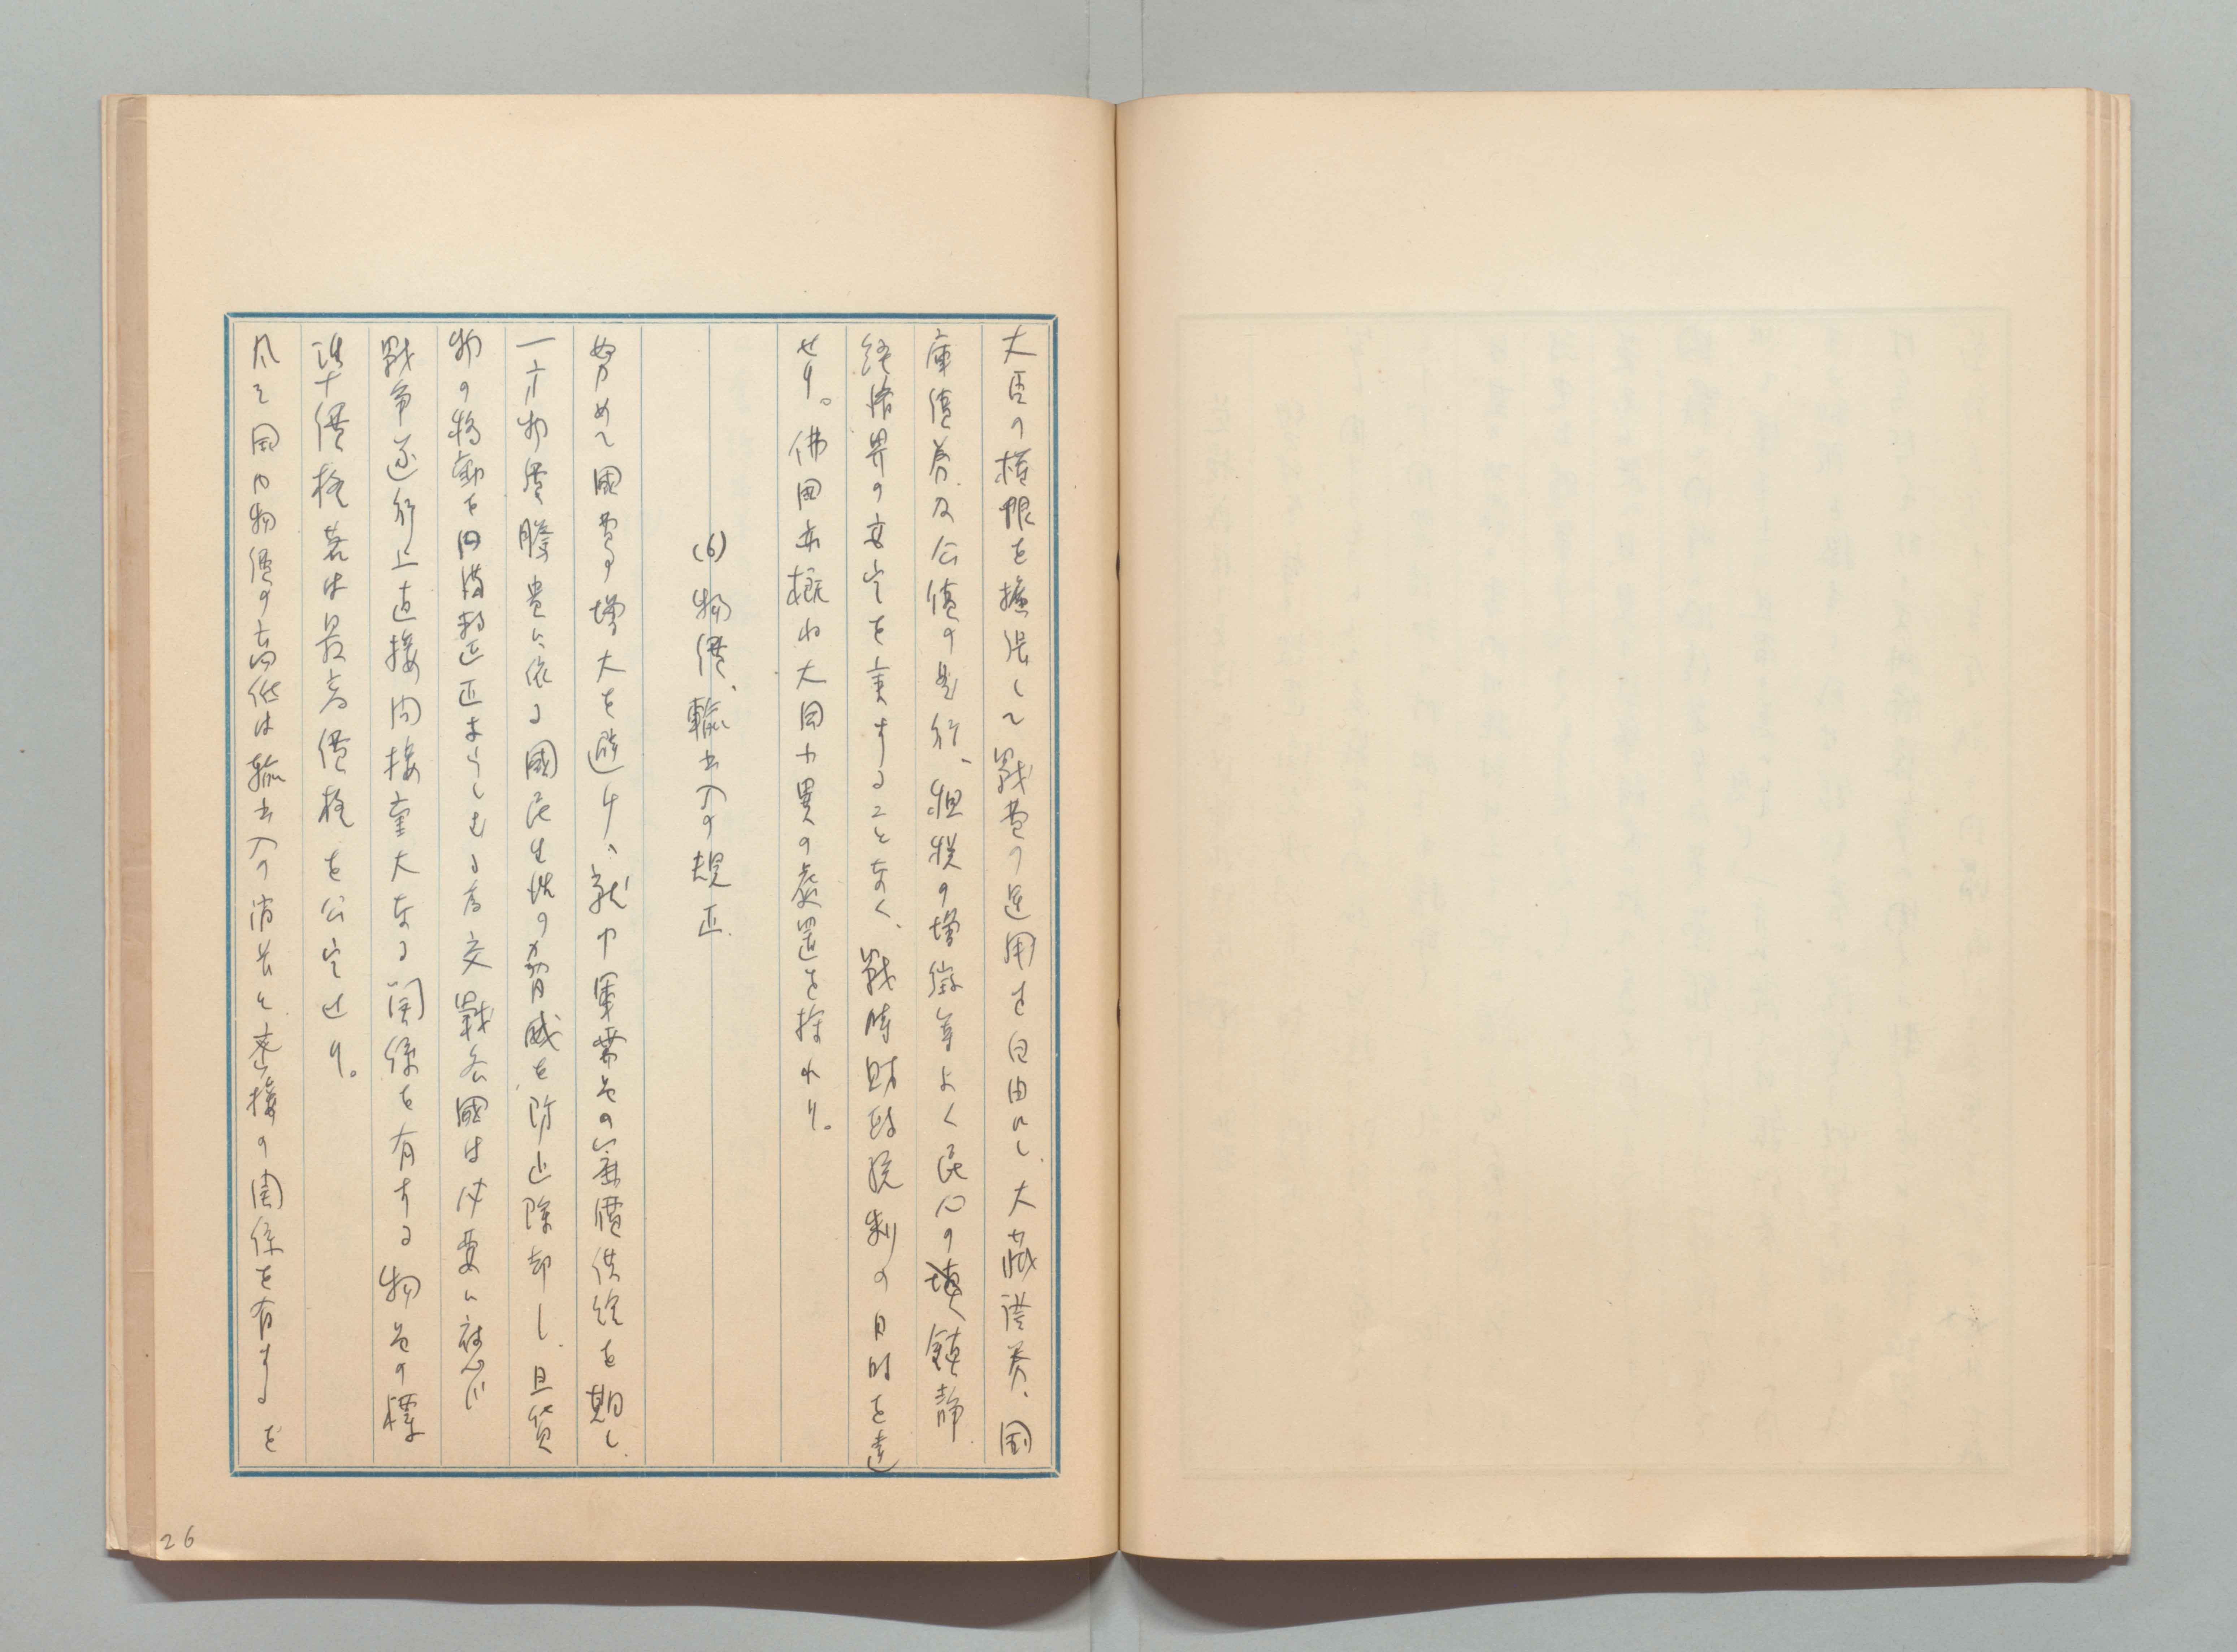 大臣の権限を擴張して戰費の運用を自由にし、大藏證券、国
庫債券及公債の発行、租税の増徴等よく民心の鎮静
経済界の安定を害することなく、戰時財政統制の目的を達
せり。佛国亦概ね大同小異の處置を採れり。
(6)物價、輸出入の規正
努めて國費の増大を避け、就中軍需品の廉價供給を期し、
一方物價騰貴に依る國民生活の脅威を防止除却し、且貨
物の移動を円満整正ならしむる為交戰各國は必要に應じ
戰争遂行上直接间接重大なる関係を有する物品の標
準價格若は最高價格を公定せり。
凡そ国内物價の高低は輸出入の消長と密接の関係を有するを
26